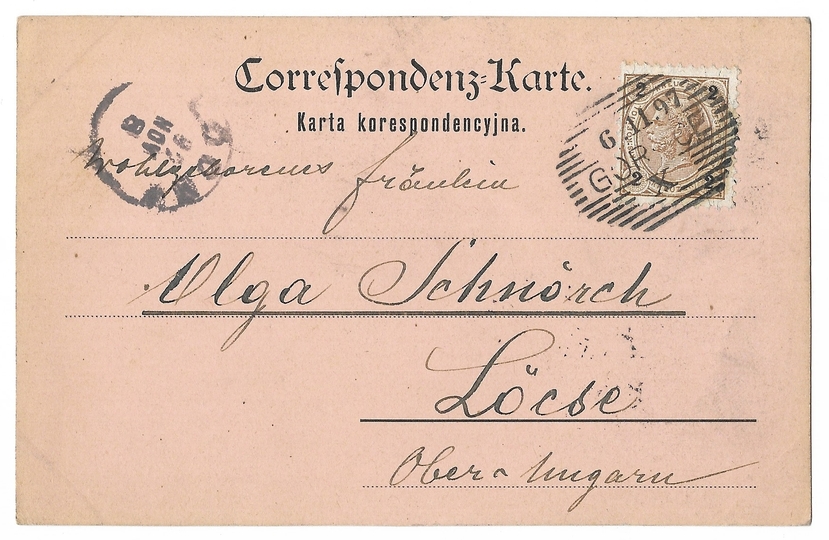 Correſpondenz-Karte.
Karta korespondencyjna.
Wohlgeborenes Fräulein
Olga Schnörch
Löcse
Ober-Ungarn
2 2
6 11.97
2 2